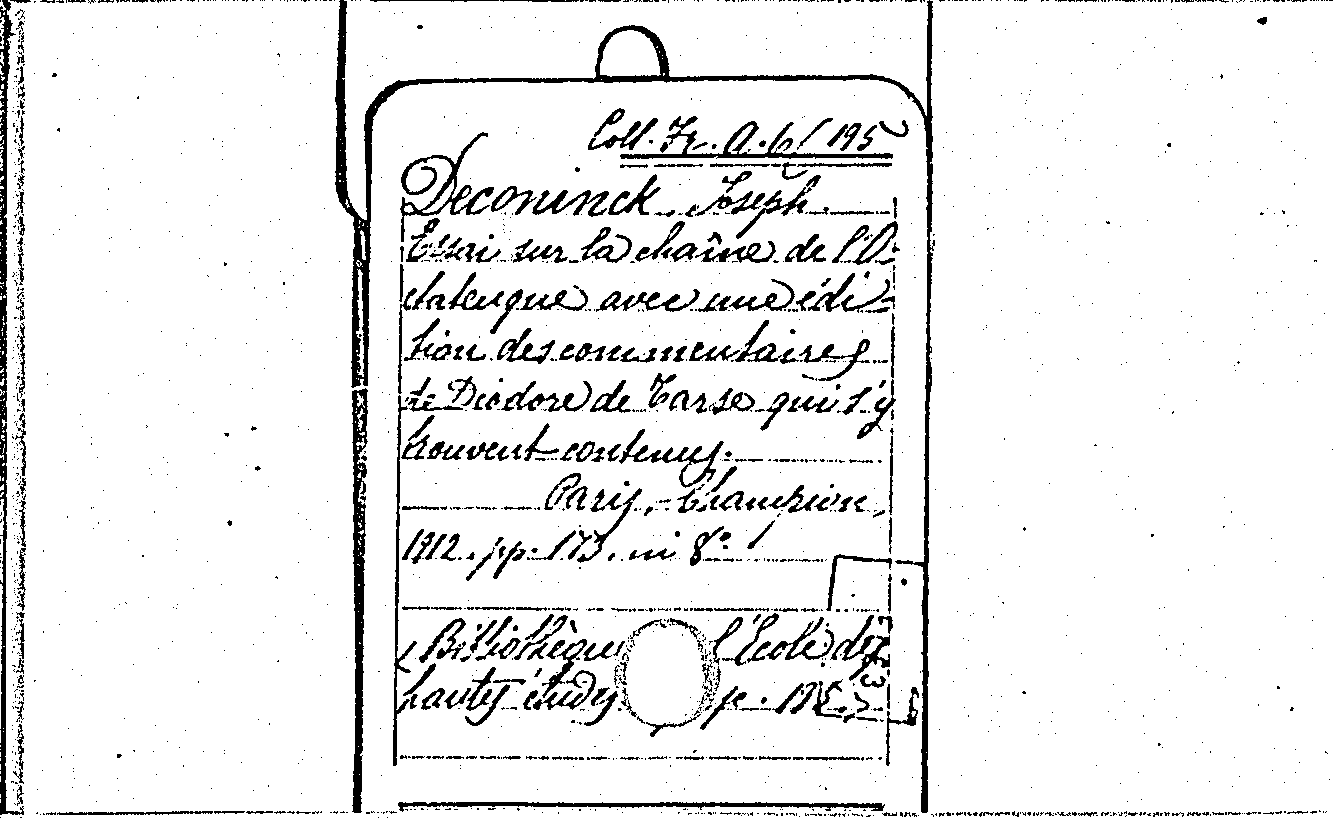 Coll. Fr. A. 6/195
Deconinck, Joseph.
Essai sur la chaîne de l'O-
ctateuque avec une édi-
tion des commentaires
de Diodore de Tarse qui s'y
trouvent contenus.
Paris, Champion,
1912. pp. 173. in 8°
(Bibliothèque l'École des
hautes études